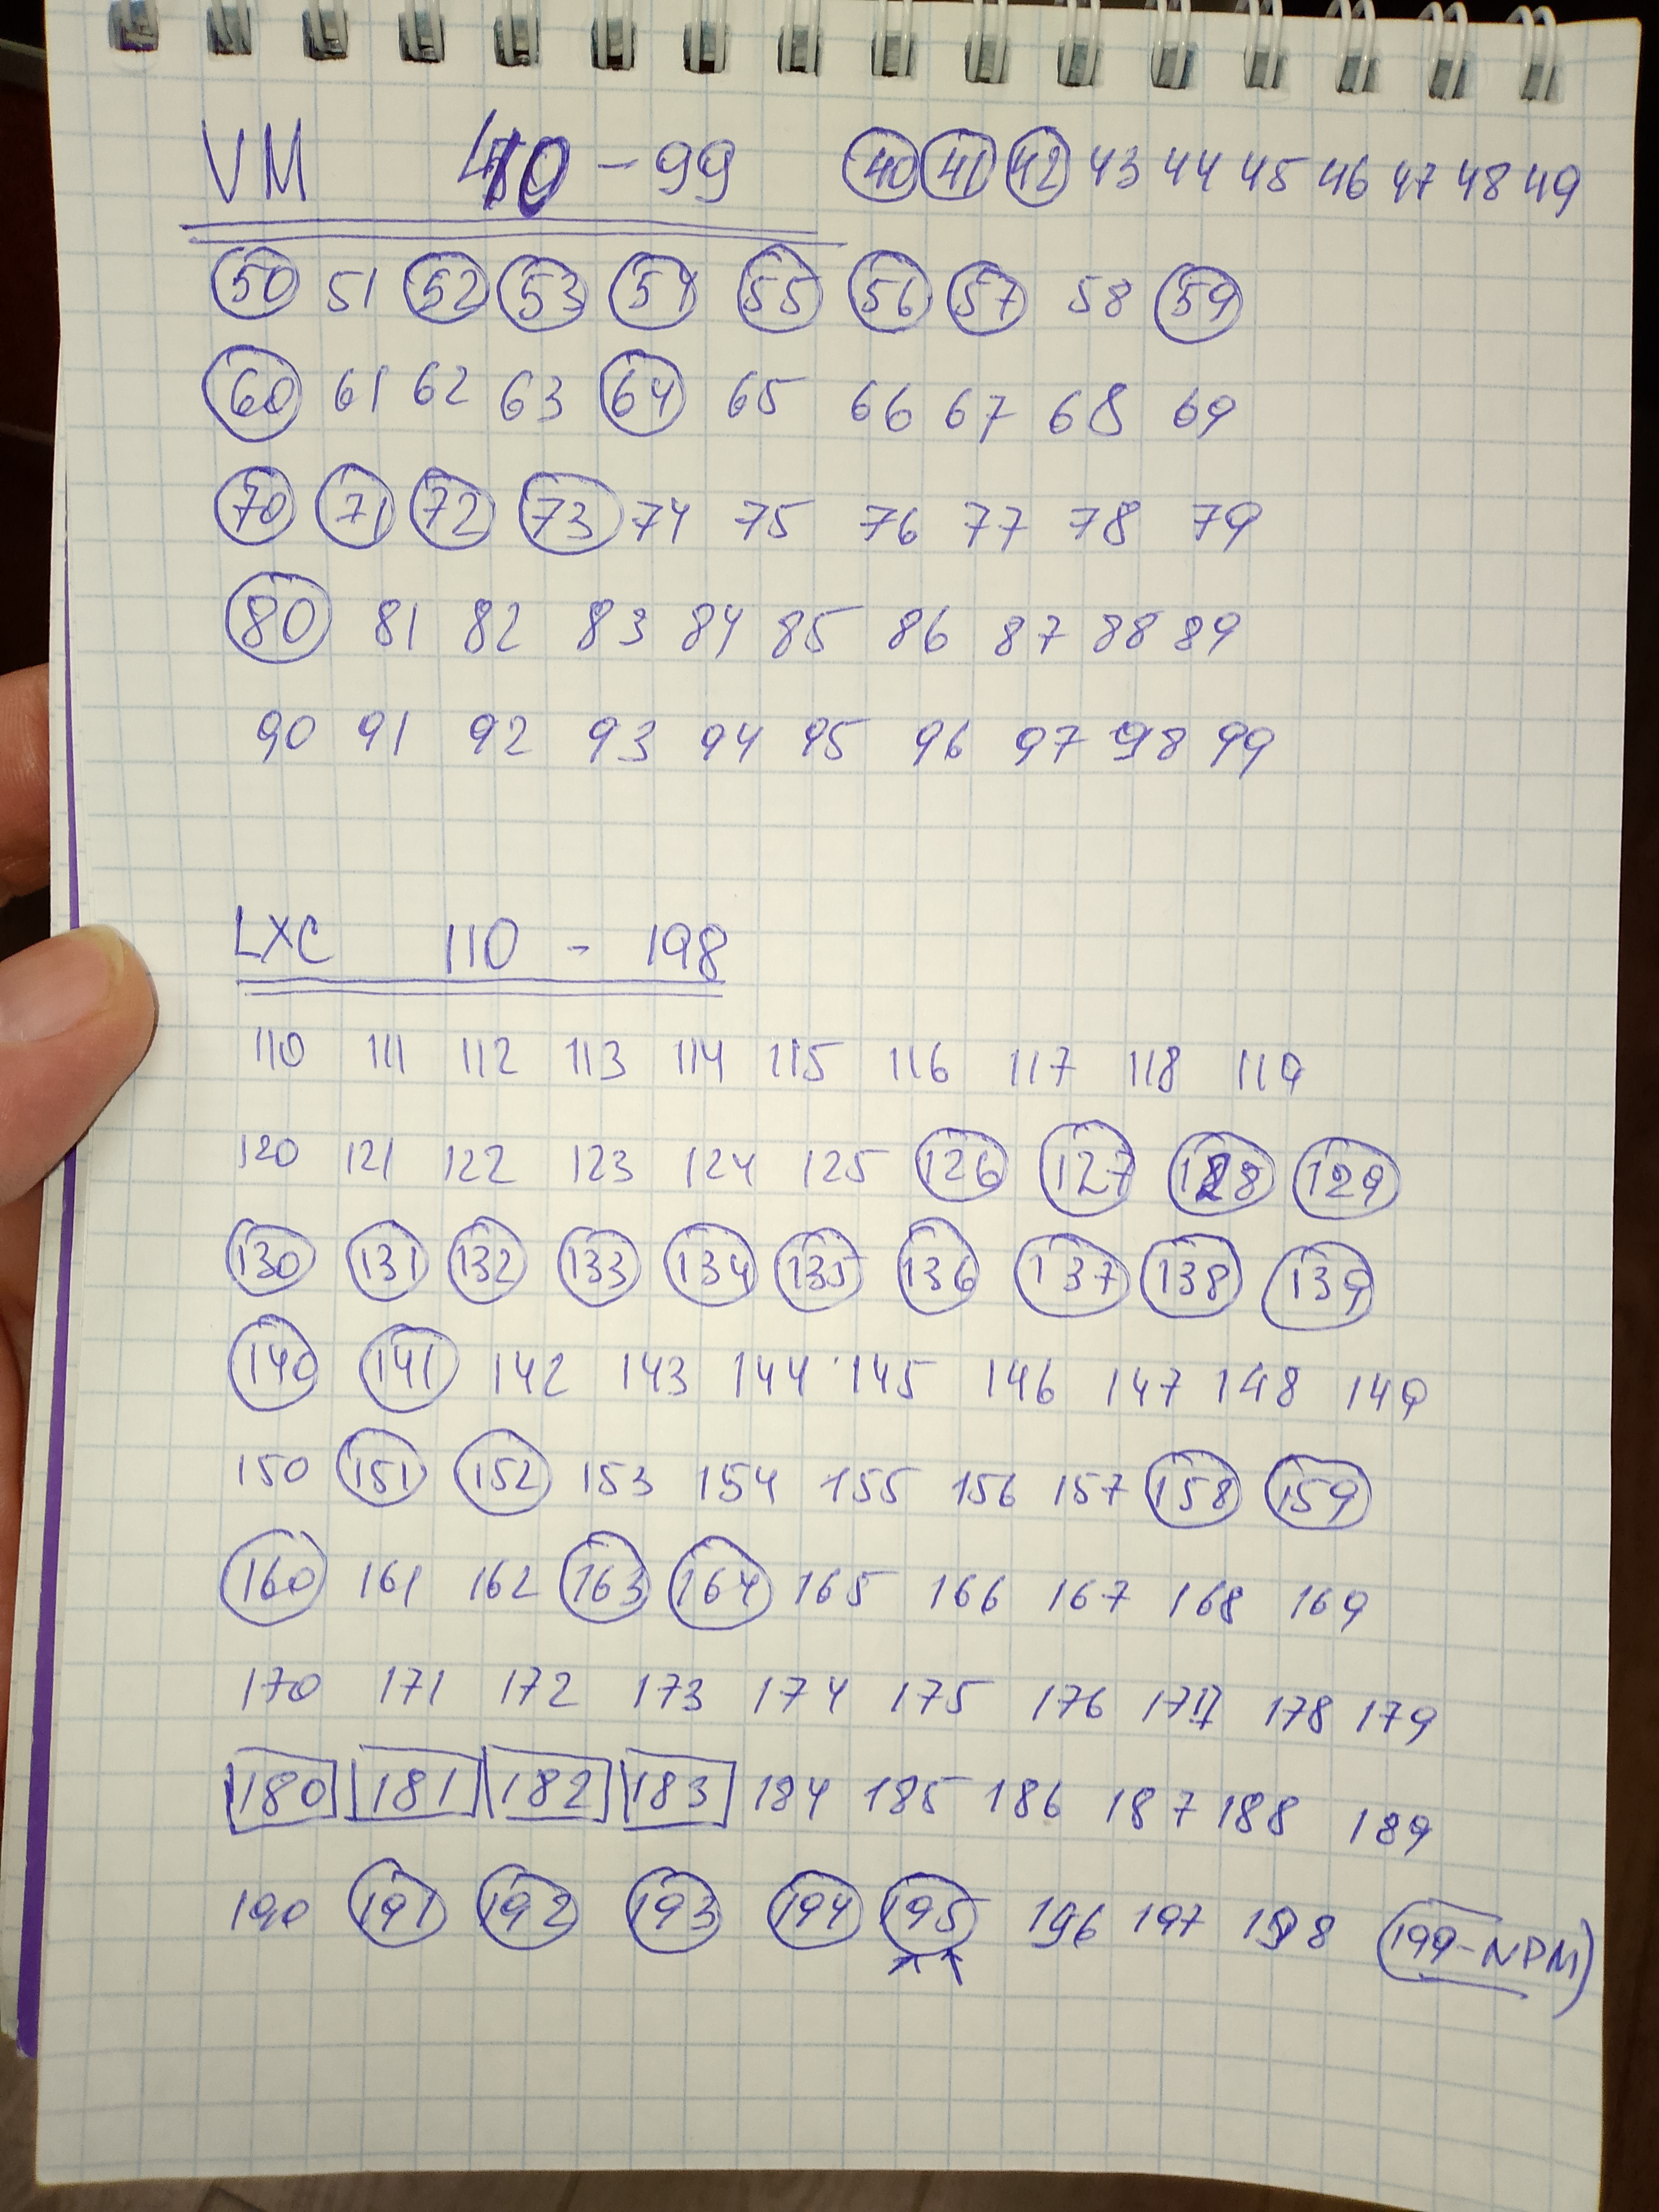 VM 40 - 99 40 41 42 43 44 45 46 47 48 49
50 51 52 53 54 55 56 57 58 59
60 61 62 63 64 65 66 67 68 69
70 71 72 73 74 75 76 77 78 79
80 81 82 83 84 85 86 87 88 89
90 91 92 93 94 95 96 97 98 99
LXC 110 - 198
110 111 112 113 114 115 116 117 118 119
120 121 122 123 124 125 126 127 128 129
130 131 132 133 134 135 136 137 138 139
140 141 142 143 144 145 146 147 148 149
150 151 152 153 154 155 156 157 158 159
160 161 162 163 164 165 166 167 168 169
170 171 172 173 174 175 176 177 178 179
180 181 182 183 184 185 186 187 188 189
190 191 192 193 194 195 196 197 198 199-NPM